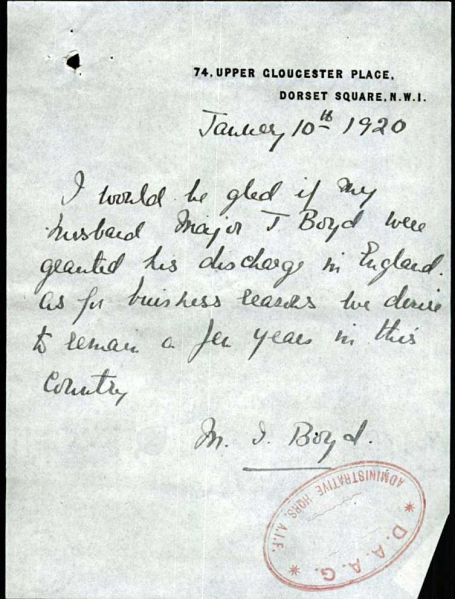 74, UPPER GLOUCESTER PLACE,
DORSET SQUARE, N.W.1.
January 10th 1920
I would be glad if my
husband Major J Boyd were
granted his discharge in England.
as for buisness reasons we desire
to remain a few years in this
Country
M. I. Boyd.
ADMINISTRATIVE HQRS. A.I.F.
* D. A. A. G. *